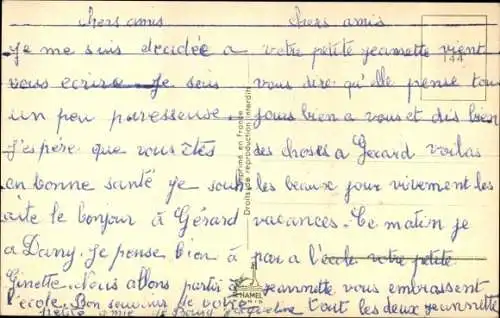 chers amis
je me suis decidée a
vous ecrire. Je suis
un peu paresseuse.
J'espére que vous êtes
en bonne santé je souh
aite le bonjour à Gérard
a Dany. Je pense bien à
Ginette. Nous allons partir à
l'école. Bon souvenir de votre
petite amie de Dany
chers amis
votre petite jeannette vient
vous dire qu'elle pense touj
jours bien a vous et dis bien
des choses a Gerard voilas
les beaux jour vivement les
vacances. Ce matin je
par a l'école votre petite
jeannette vous embrassent
tout les deux jeannette
144
Imprimé en France
Droits de reproduction interdits
HAMEL